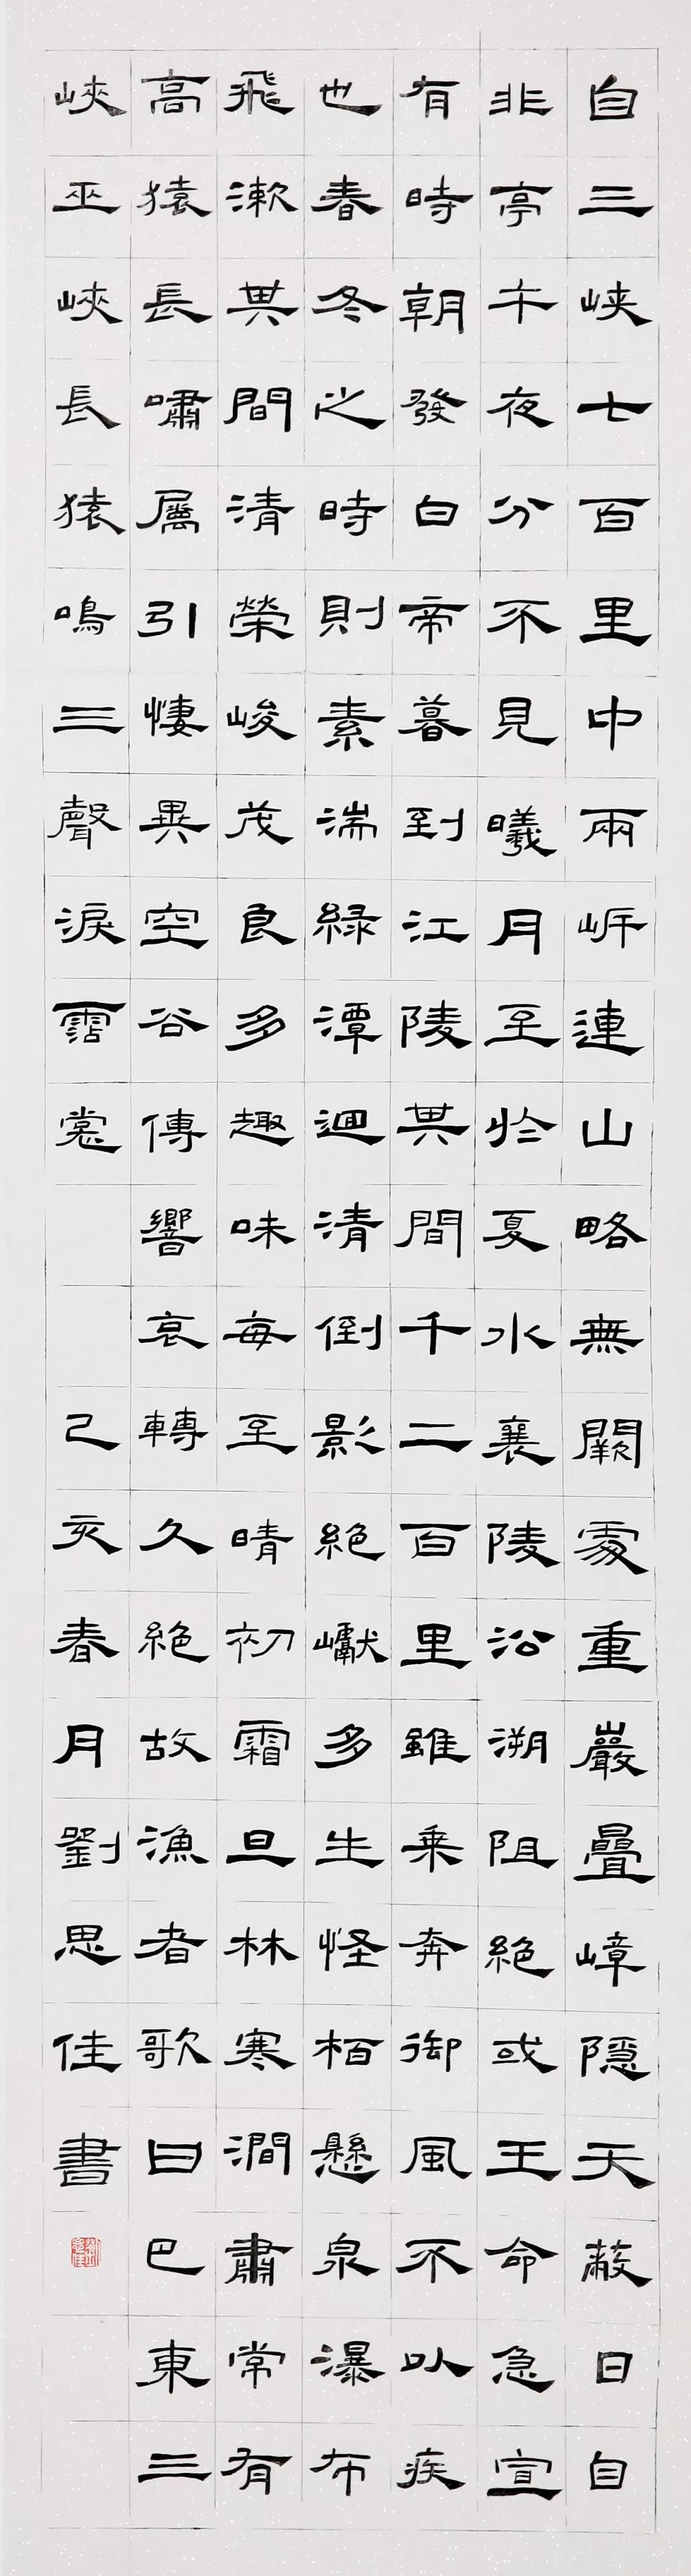 自三峡七百里中兩岍連山略無闕處重巖疊嶂隱天蔽日自
非亭午夜分不見曦月至於夏水襄陵沿溯阻絕或王命急宣
有時朝發白帝暮到江陵其間千二百里雖乗奔御風不以疾
也春冬之時則素湍緑潭迴清倒影絶巘多生怪栢懸泉瀑布
飛漱其間清榮峻茂良多趣味每至晴初霜旦林寒澗肅常有
高猿長嘯屬引悽異空谷傳響哀轉久絕故漁者歌曰巴東三
峽巫峽長猿鳴三聲淚霑裳
己亥春月劉思佳書